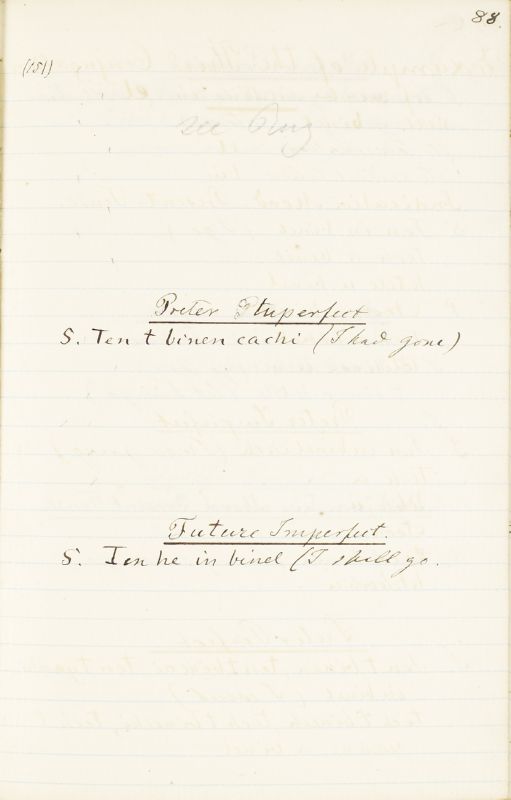 88.
(151)
Preter Pluperfect
S. Ten t binen cachi (I had gone)
Future Imperfect.
S. Ten he in binel (I shall go.